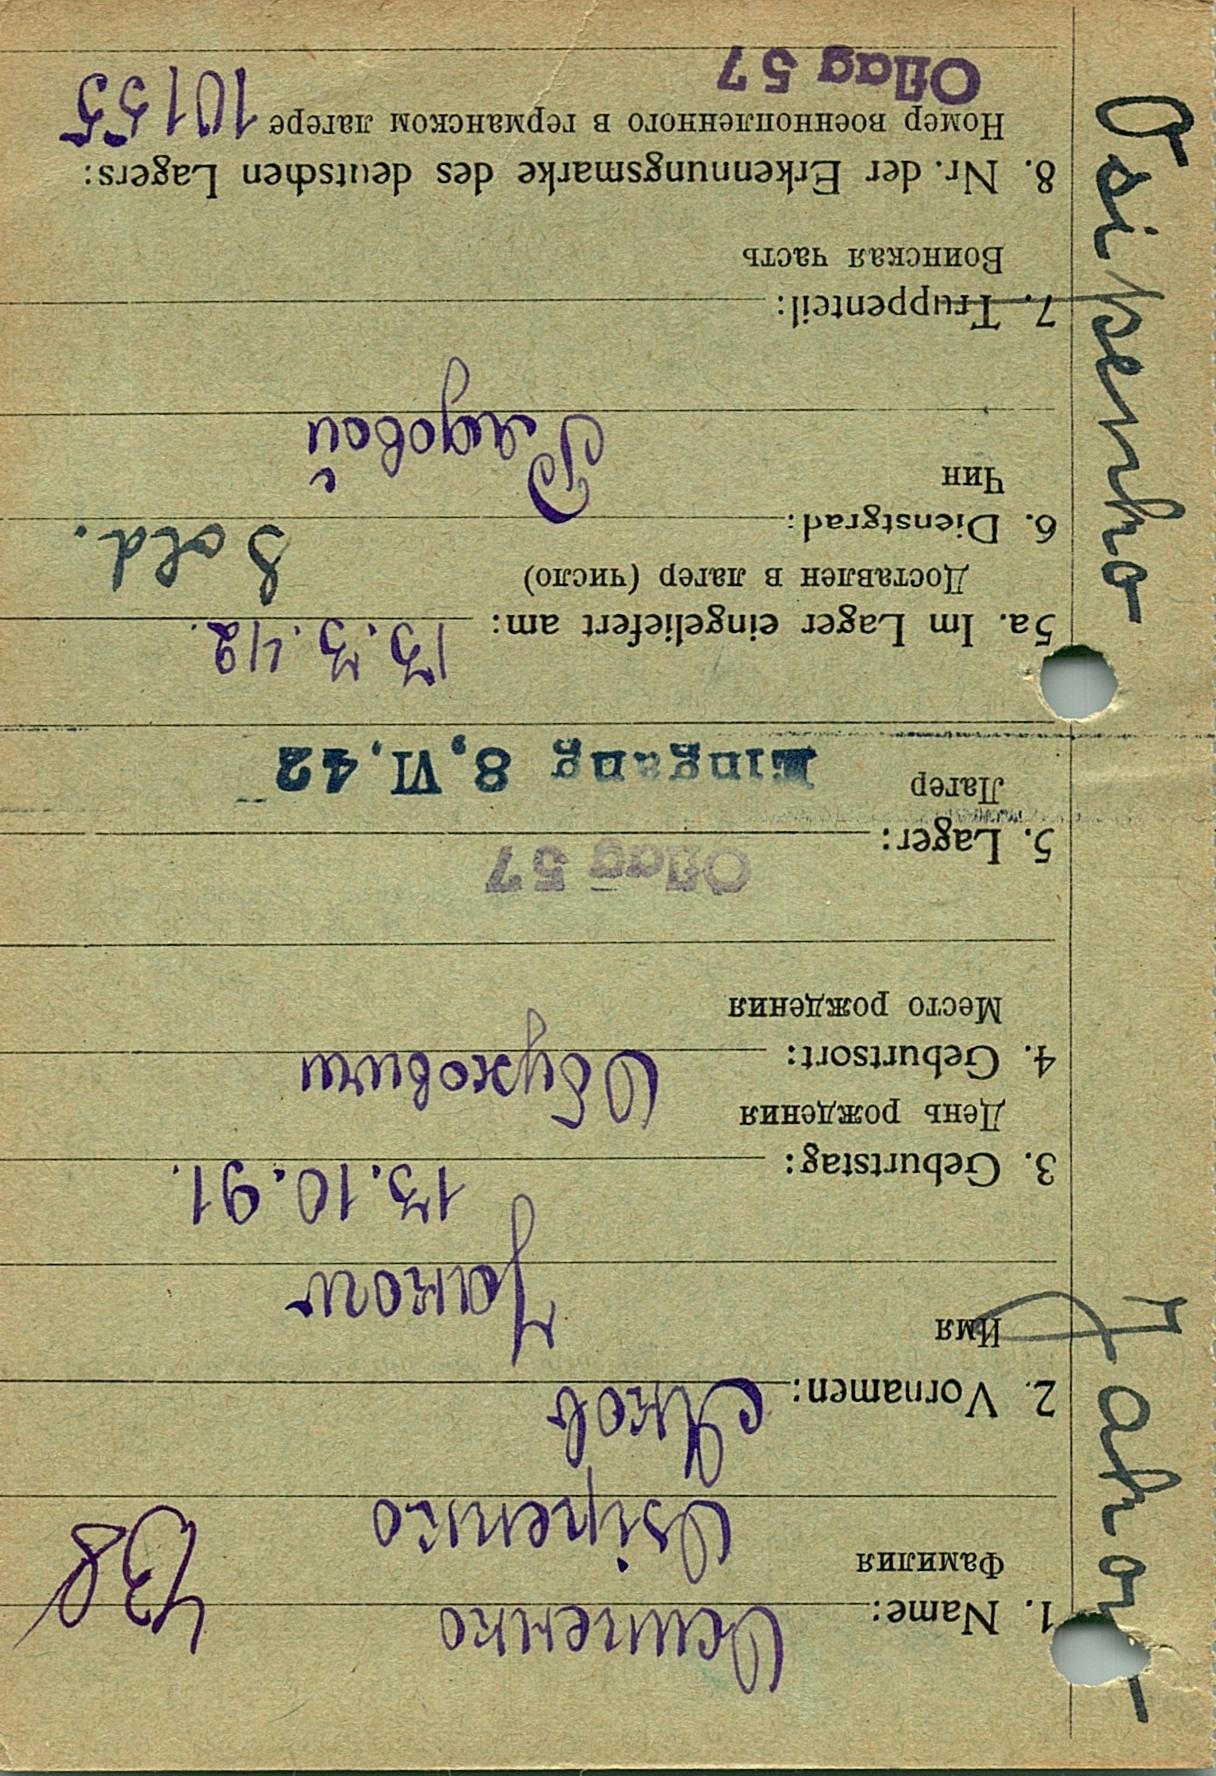 438
1. Name: Осипенко
Фамилия
Osipenko
2. Vornamen: Яков
Имя
Jakow
3. Geburtstag: 13.10.91.
День рождения
4. Geburtsort: Обуховичи
Место рождения
Oflag 57
5. Lager:
Лагер
Eingang 8.VI.42
5a. Im Lager eingeliefert am: 13.3.42.
Доставлен в лагер (число)
6. Dienstgrad: Sold.
Чин
Рядовой
7. Truppenteil:
Воинская часть
8. Nr. der Erkennungsmarke des deutschen Lagers:
Номер военнопленного в германском лагере 10155
Oflag 57
Osipenko Jakow